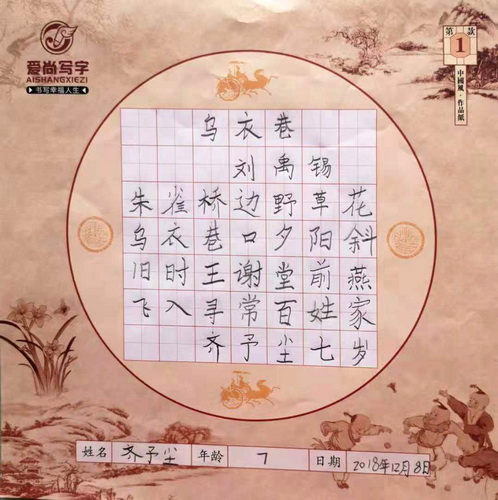 爱尚写字
AISHANGXIEZI
书写幸福人生
第1款
中國風·作品紙
乌衣巷
刘禹锡
朱雀桥边野草花
乌衣巷口夕阳斜
旧时王谢堂前燕
飞入寻常百姓家
齐予尘七岁
姓名 齐予尘 年龄 7 日期 2018年12月8日